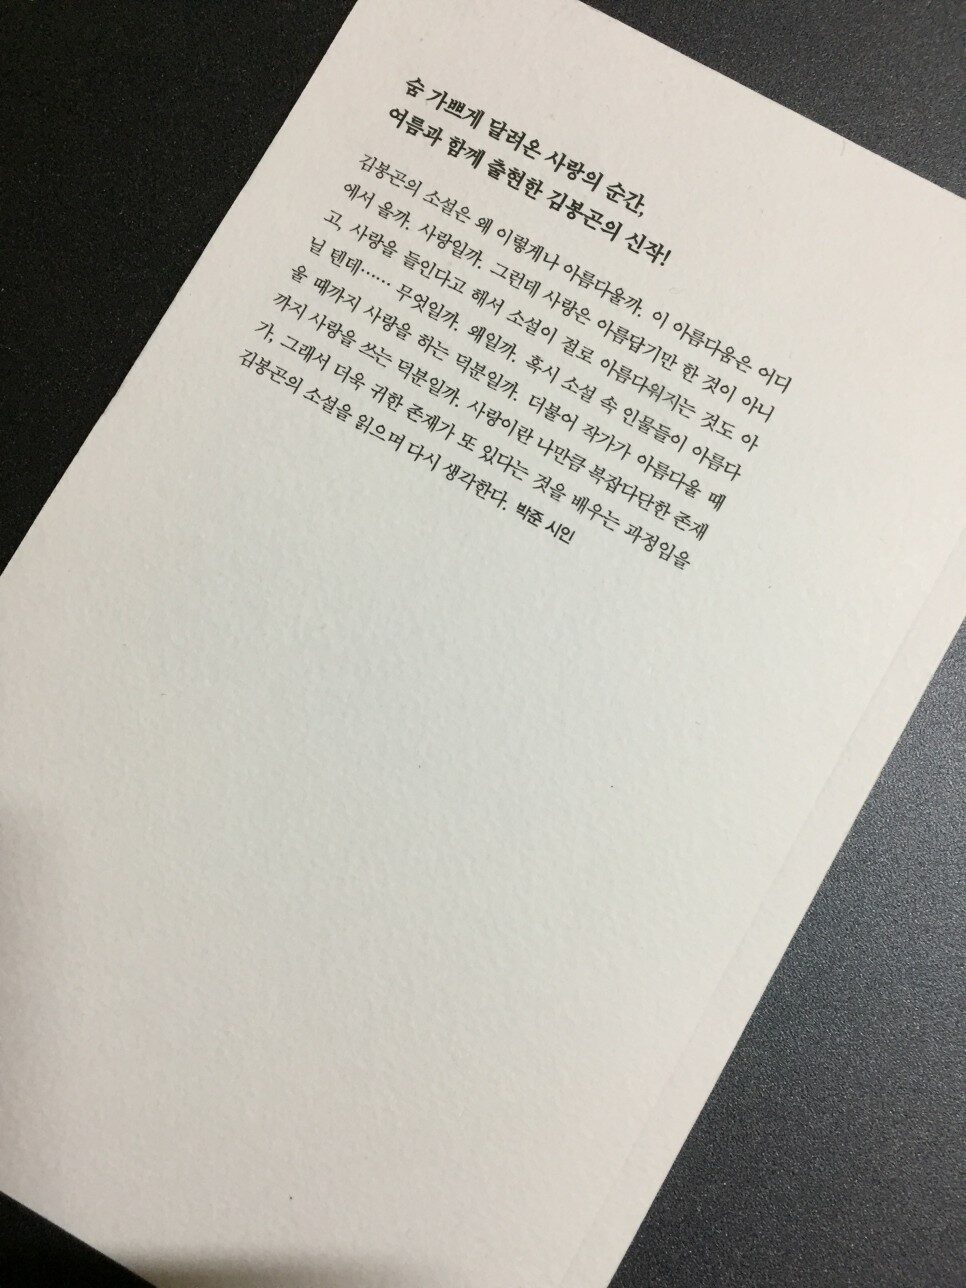 숨 가쁘게 달려온 사랑의 순간,
여름과 함께 출현한 김봉곤의 신작!
김봉곤의 소설은 왜 이렇게나 아름다울까. 이 아름다움은 어디
에서 올까. 사랑일까. 그런데 사랑은 아름답기만 한 것이 아니
고, 사랑을 들인다고 해서 소설이 절로 아름다워지는 것도 아
닐 텐데…… 무엇일까. 왜일까. 혹시 소설 속 인물들이 아름다
울 때까지 사랑을 하는 덕분일까. 더불어 작가가 아름다울 때
까지 사랑을 쓰는 덕분일까. 사랑이란 나만큼 복잡다단한 존재
가, 그래서 더욱 귀한 존재가 또 있다는 것을 배우는 과정임을
김봉곤의 소설을 읽으며 다시 생각한다. 박준 시인